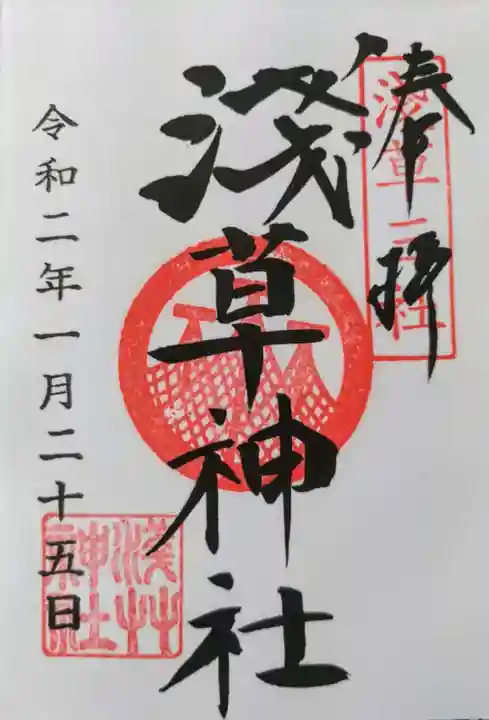 奉拝
浅草三社
淺草神社
令和二年一月二十五日
浅草
神社